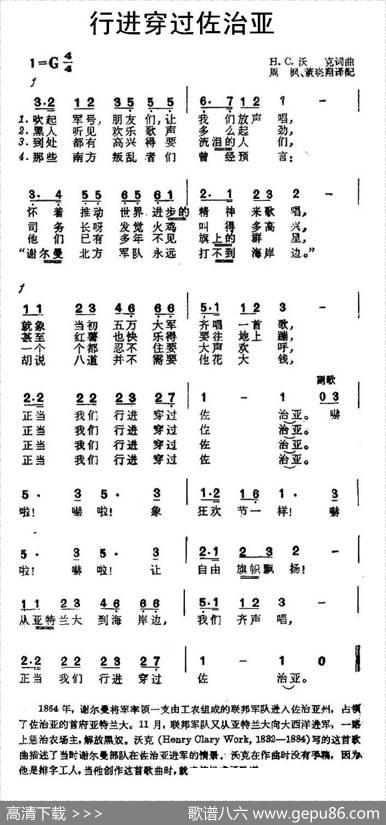 行进穿过佐治亚
1=G 4/4
H.C.沃 克词曲
周 枫、董晓翔译配
f
3·2 1 2 3·5 5 5 6·7 1 2 1 -
1.吹起 军号,朋友 们,让 我 们放声 唱,
2.黑人 听见 欢乐 歌声 多 么起 劲,
3.到处 都有 高兴 得要 流泪的人 们,
4.那些 南方 叛乱 者们 曾 经预 言:
3·4 5 5 6 5 6 1 2·1 2 3 2 -
怀 着 推动 世界 进步的 精 神 来歌 唱,
司 务 长呀 发觉 火鸡 叫 得 多高 兴,
他 们 已有 多年 不见 旗上的 群 星,
“谢尔曼 北方 军队 永远 打不到 海岸 边。”
f
1 1 2 3 4 6 6 6 5·1 1 2 3 -
就象 当初 五万 大军 齐唱 一首 歌,
甚至 红薯 也快 乐得 要往 地上 蹦,
一个 个都 忍不 住要 大声 欢 呼,
胡说 八道 并不 需要 他花 大 钱,
副歌
2·2 2 2 2 3 2 7 1 - 1 0 3
正当 我们 行进 穿过 佐 治亚。 嚇
正当 我们 行进 穿过 佐 治亚。
正当 我们 行进 穿过 佐 治亚。
正当 我们 行进 穿过 佐 治亚。
5· 3 5· 3 1·2 1 6 1· 3
啦! 嚇 啦! 象 狂欢 节一 样! 嚇
5· 3 5· 3 2·1 2 3 2 -
啦! 嚇 啦! 让 自由 旗帜飘 扬!
1 1 2 3 4 6 6 6 5·1 1 2 3 -
从亚特兰大 到海 岸边, 我们 齐声 唱,
2·2 2 2 2 3 2 7 1 - 1 0
正当 我们 行进 穿过 佐 治亚。
1864年,谢尔曼将军率领一支由工农组成的联邦军队进入佐治亚州,占领
了佐治亚的首府亚特兰大。11月,联邦军队又从亚特兰大向大西洋进军,一路
上惩治农场主,解放黑奴。沃克(Henry Clary Work, 1832—1884)写的这首歌
曲描述了当时谢尔曼部队在佐治亚进军的情景。沃克在作曲时没有手稿,因为
他是排字工人,当他创作这首歌曲时,就
高清下载 >>>
歌谱八六 www.gepu86.com